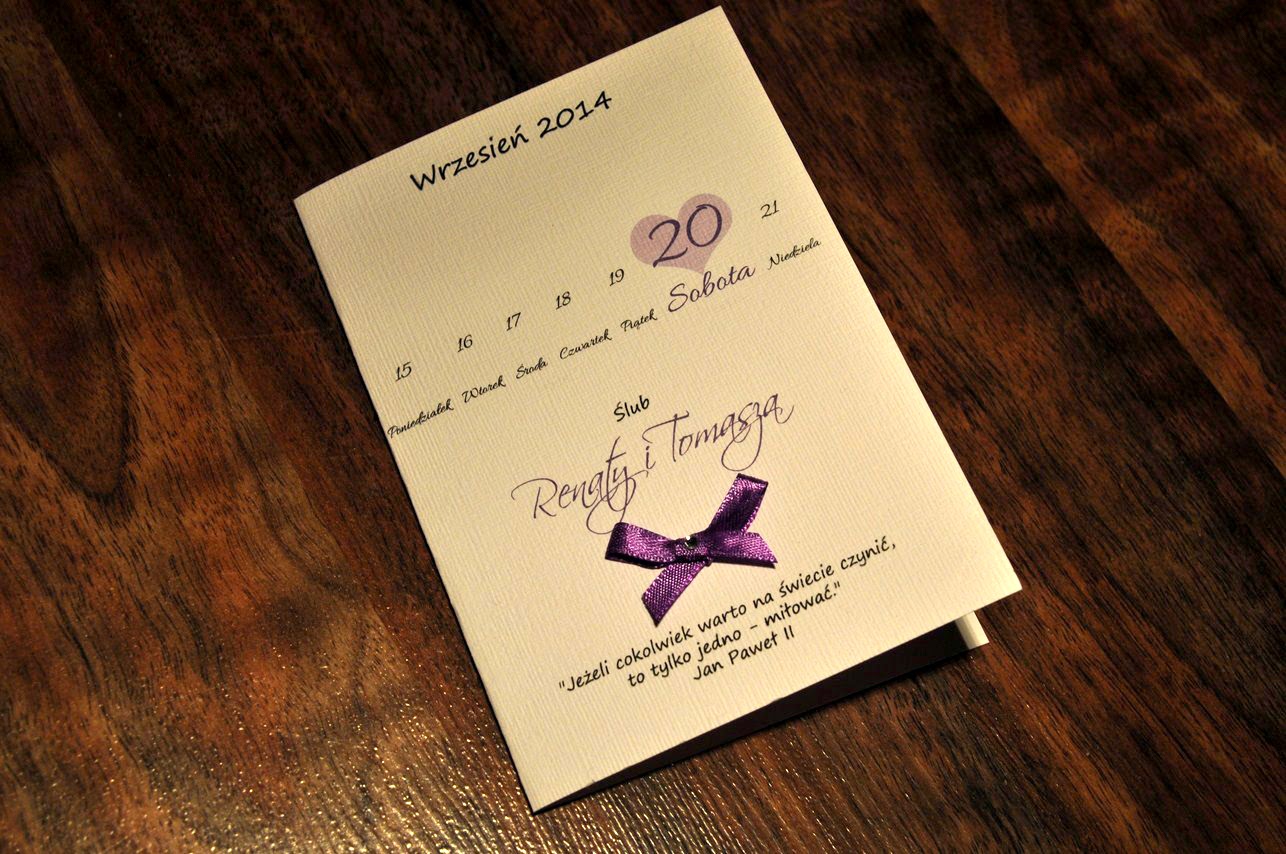 Wrzesień 2014
15 16 17 18 19 20 21
Poniedziałek Wtorek Środa Czwartek Piątek Sobota Niedziela
Ślub
Renaty i Tomasza
"Jeżeli cokolwiek warto na świecie czynić,
to tylko jedno - miłować."
Jan Paweł II